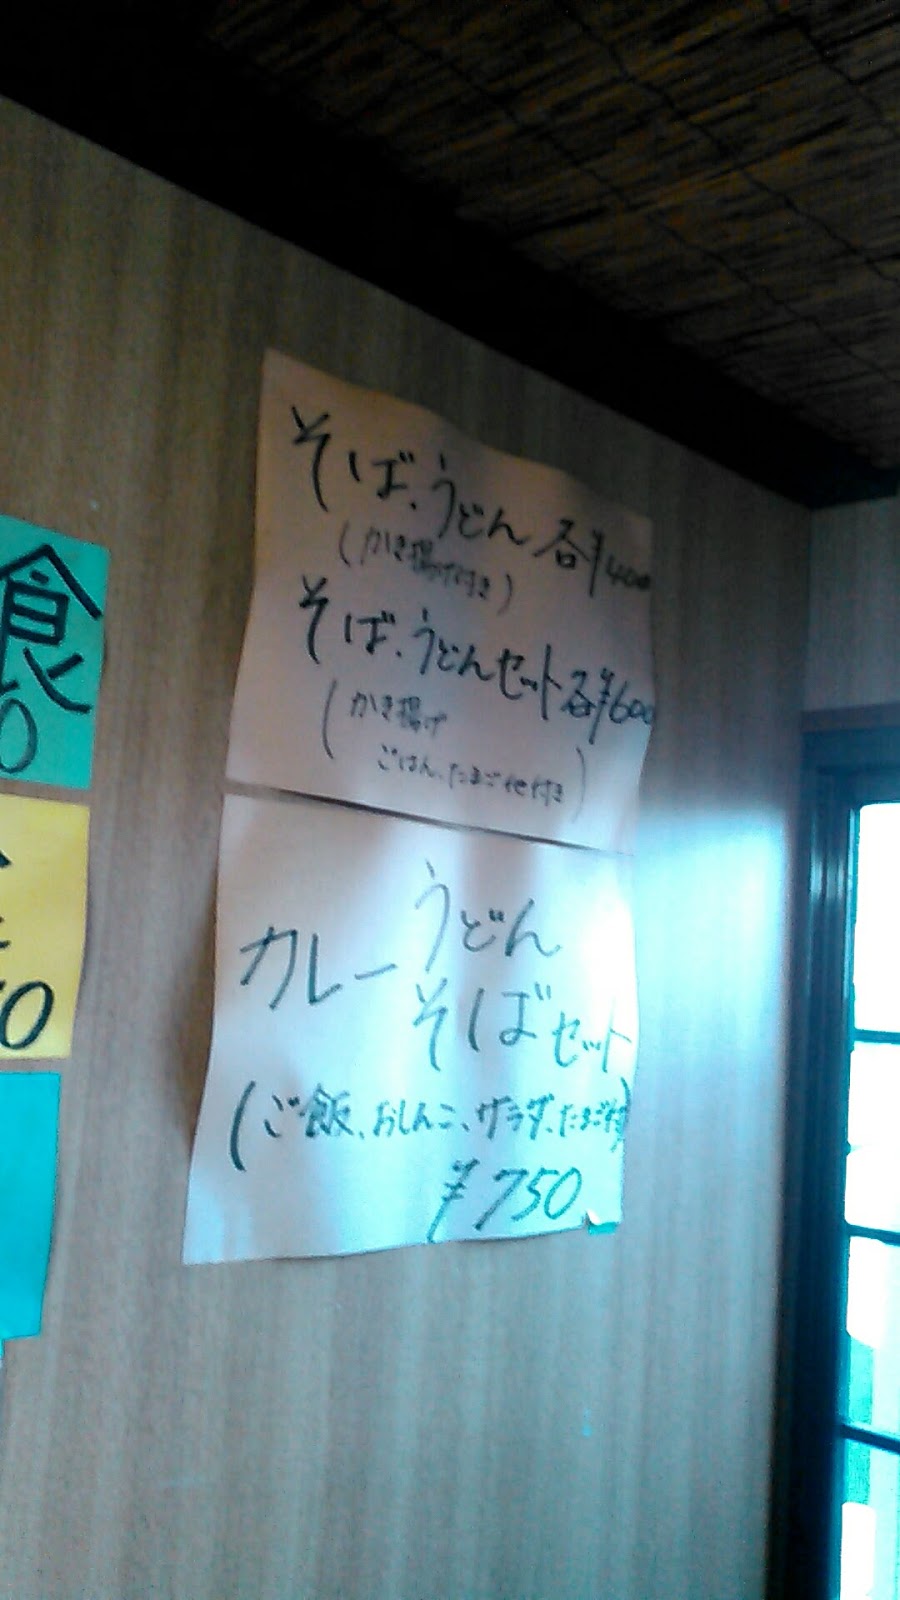 食
0
50
そば、うどん 各¥400
(かき揚げ付き)
そば、うどんセット各¥600
(かき揚げ
ごはん、たまご他付き)
カレーうどん
そばセット
(ご飯、おしんこ、サラダ、たまご付)
¥750